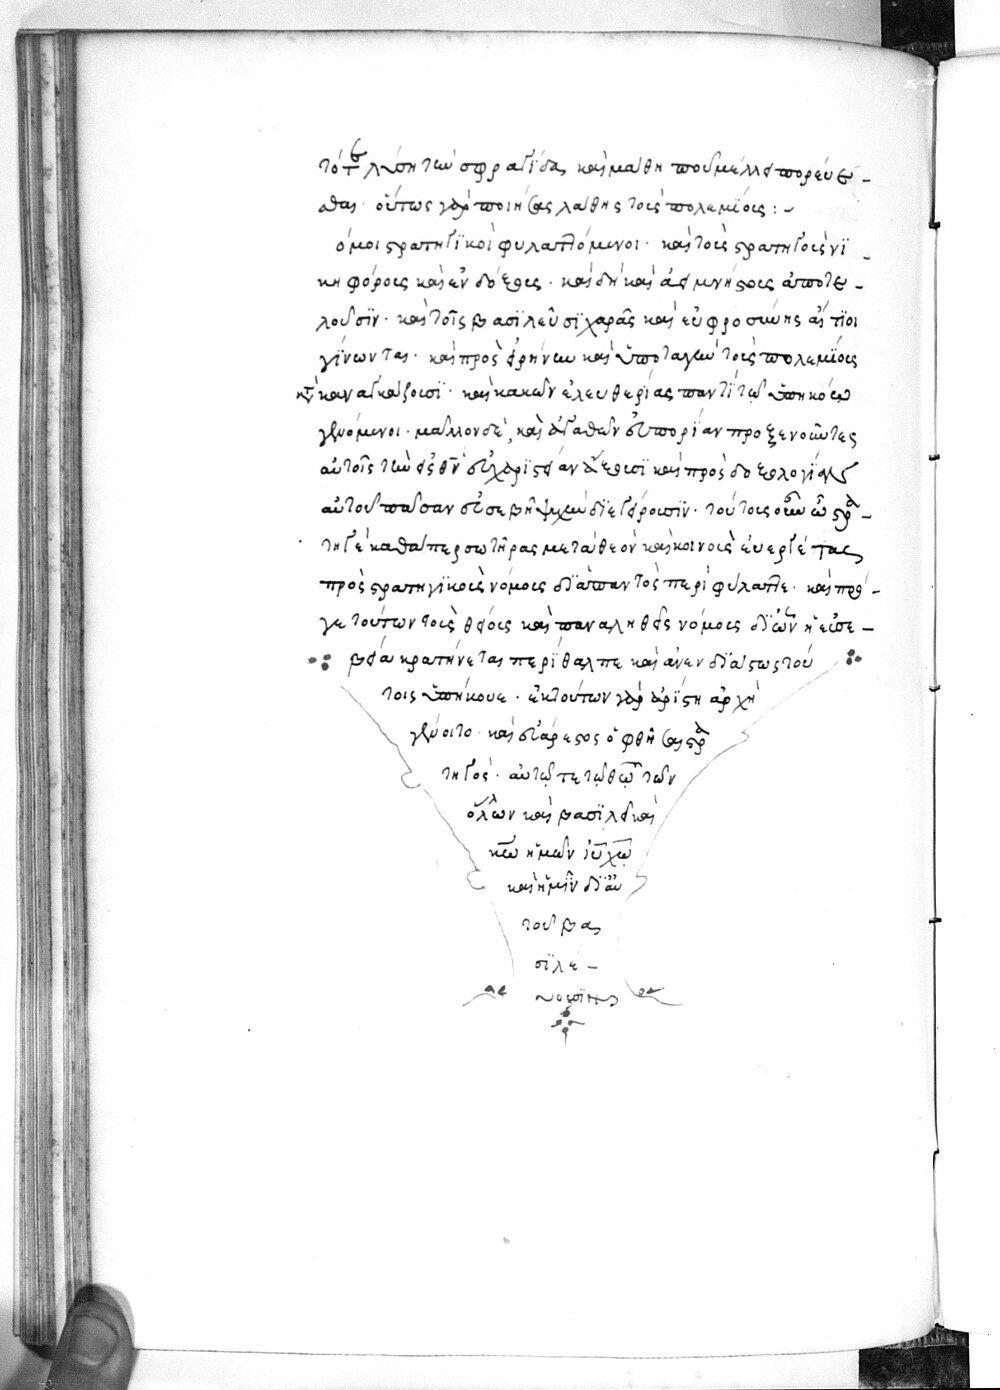 τότε λύση τὴν σφραγῖδα, καὶ μάθη ποῦ μέλλει πορεύε-
σθαι· οὕτως γὰρ ποιήσας λάθης τοῖς πολεμίοις:-
ὁ μοι στρατηγικοὶ φυλαττόμενοι· καὶ τοῖς στρατηγοῖς νι
κηφόροις καὶ ἐνδόξοις· καὶ δὴ καὶ ἀειμνήστοις ἀποτε-
λοῦσιν· καὶ τοῖς βασιλεῦσι χαρᾶς καὶ εὐφροσύνης αἴτιοι
γίνονται· καὶ πρὸς εἰρήνην καὶ ὑποταγὴν τοῖς πολεμίοις
καταναγκάζουσι· καὶ κακῶν ἐλευθερίας παντὶ τῷ ὑπηκόῳ
γενόμενοι· μᾶλλον δὲ, καὶ ἀγαθῶν εὐπορίαν προξενοῦντες
αὐτοῖς τὴν εἰς θν εὐχαριστείαν αὔξουσι καὶ πρὸς δοξολογίαν
αὐτοῦ πᾶσαν εὐσεβῆ ψυχὴν διεγείρουσιν· τούτοις οὖν ὦ στρα-
τηγὲ καθάπερ σωτῆρας μετὰ θεὸν καὶ κοινοὺς εὐεργέτας
πρὸς στρατηγικοῖς νόμοις διαπαντὸς περιφύλαττε· καὶ πρό-
γε τούτων τοῖς θείοις καὶ παναληθεῖς νόμοις δι' ὧν ἡ εὐσέ-
βεια κρατύνεται περίθαλπε καὶ ἀνενδιάστως τού
τοις ὑπήκουε· ἐκ τούτων γὰρ ἀρίστη ἀρχὴ
γένοιτο· καὶ εὐάρεστος ὀφθήσαι στρα
τηγὸς· αὐτῷ τε τῷ θῶ τῶν
ὅλων καὶ βασιλεῖ καὶ
κω ἡμῶν ιυ χω
καὶ ἡμῖν δι' αὐ
τοῦ βα
σιλε-
ύουσιν